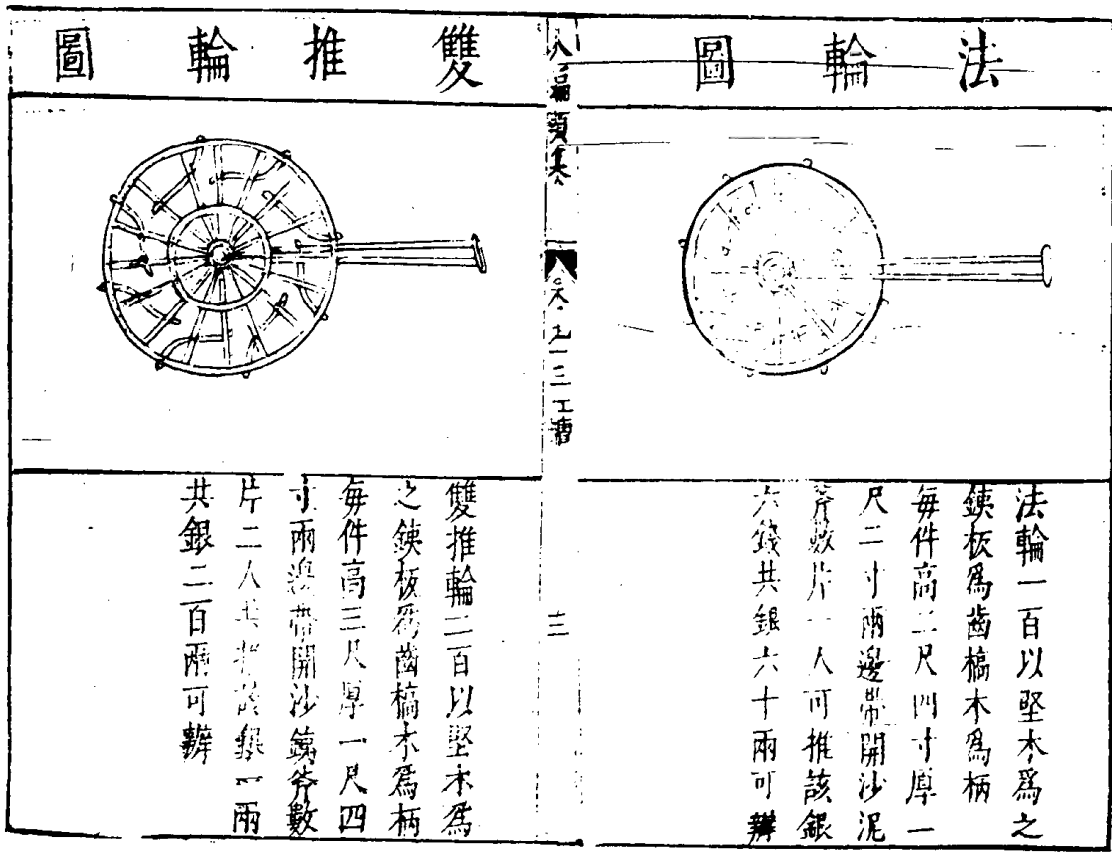 法輪圖
法輪一百以堅木爲之
鐵板爲齒槁木爲柄
每件高二尺四寸厚一
尺二寸兩邊帶開沙泥
斧數片一人可推該銀
六錢共銀六十兩可辦
三
雙推輪圖
雙推輪二百以堅木爲
之鐵板爲齒槁木爲柄
每件高三尺厚一尺四
寸兩邊帶開沙鐵斧數
片二人共推該銀一兩
共銀二百兩可辦